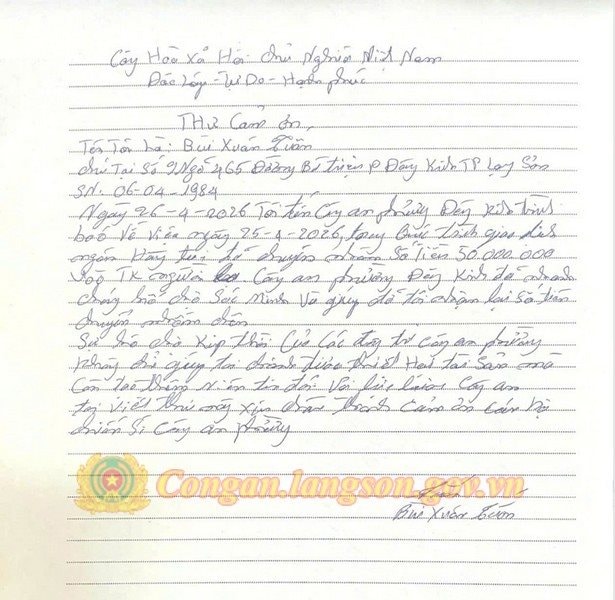 Cộng Hòa Xã Hội Chủ Nghĩa Việt Nam
Độc Lập - Tự Do - Hạnh phúc
THƯ Cảm ơn,
Tên Tôi là: Bùi Xuân Tuấn
chú Tại Số 9 Ngõ 465 Đường Bà triệu P Đông Kinh TP Lạng Sơn
SN: 06-04-1984
Ngày 26-4-2026 Tôi đến Công an phường Đông Kinh trình
báo Về Việc ngày 25-4-2026, trong Quá trình giao dịch
ngân Hàng tôi đã chuyển nhầm Số Tiền 50.000.000
vào TK người Công an phường Đông Kinh đã nhanh
chóng hỗ trợ Xác Minh Và giúp đỡ tôi nhận lại Số tiền
chuyển nhầm trên
Sự hỗ trợ Kịp Thời Của Các đồng chí công an phường
không chỉ giúp tôi tránh được thiệt Hại tài Sản mà
Còn tạo thêm Niềm tin đối Với lực lượng Công an
tôi Viết thư này Xin chân thành Cảm ơn cán bộ
chiến Sĩ Công an phường
Congan.langson.gov.vn
Bùi Xuân Tuấn